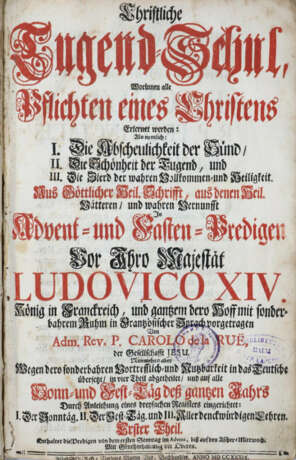 Christliche
Tugend-Schul,
Worinnen alle
Pflichten eines Christens
Erlernet werden:
Als nemlich:
I. Die Abscheulichkeit der Sünd/
II. Die Schönheit der Tugend, und
III. Die Zierd der wahren Vollkommen-und Heiligkeit.
Aus Göttlicher Heil. Schrifft, aus denen Heil.
Vätteren/ und wahren Vernunfft
In
Advent-und Fasten-Predigen
Vor Ihro Majestät
LUDOVICO XIV.
König in Franckreich, und gantzem dero Hoff mit sonder-
bahrem Ruhm in Frantzösischer Sprach vorgetragen
Von
Adm. Rev. P. CAROLO de la RUE,
der Gesellschafft JESU.
Nunmehro aber
Wegen dero sonderbahren Vortrefflich-und Nutzbarkeit in das Teutsche
übersetzt/ in vier Theil abgetheilet/ und auf alle
Sonn-und Fest-Täg deß gantzen Jahrs
Durch Anleitung eines dreyfachen Registers eingerichtet:
I. Der Sonntäg. II. Der Fest-Täg, und III. Aller denckwürdigen Lehren.
Erster Theil.
Enthaltet die Predigen von dem ersten Sonntag im Advent, biß auf den Ascher-Mittwoch.
Mit Genehmhaltung der Oberen.
ANNO